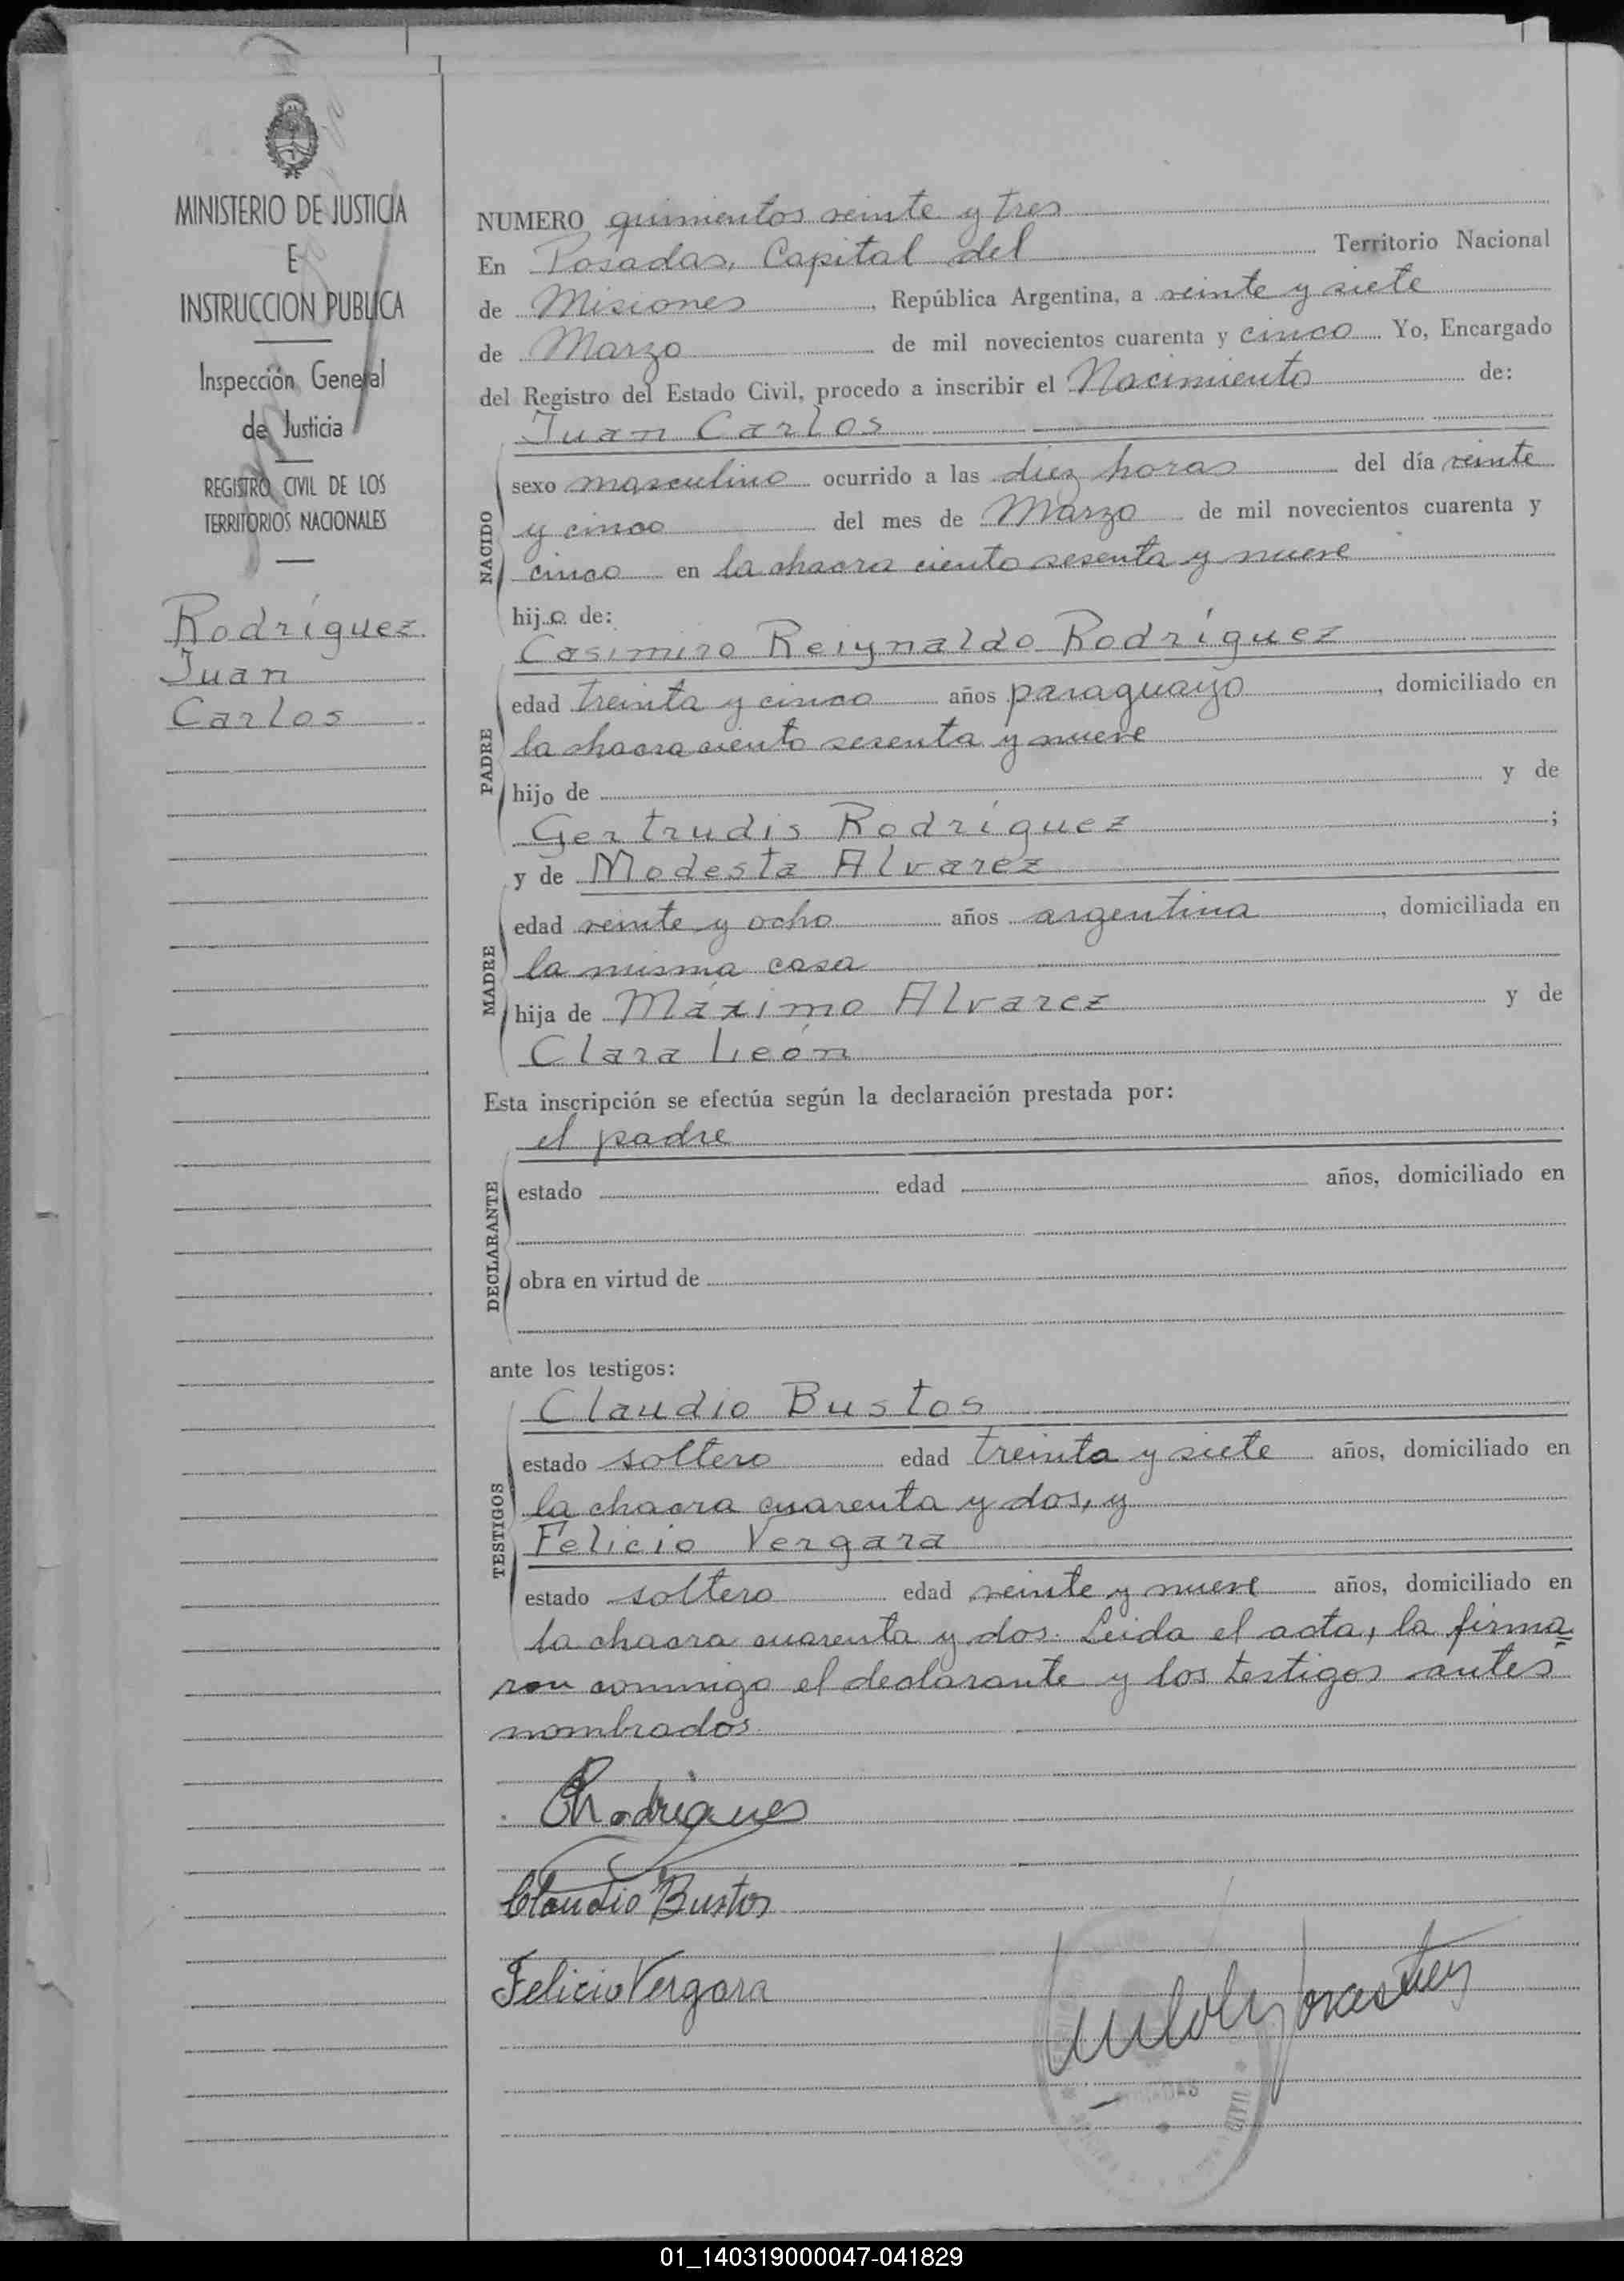 MINISTERIO DE JUSTICIA
E
INSTRUCCION PUBLICA
Inspección General
de Justicia
REGISTRO CIVIL DE LOS
TERRITORIOS NACIONALES
Rodríguez
Juan
Carlos
NUMERO quinientos veinte y tres
En Posadas, Capital del Territorio Nacional
de Misiones, República Argentina, a veinte y siete
de Marzo de mil novecientos cuarenta y cinco Yo, Encargado
del Registro del Estado Civil, procedo a inscribir el Nacimiento de:
Juan Carlos
NACIDO
sexo masculino ocurrido a las diez horas del día veinte
y cinco del mes de Marzo de mil novecientos cuarenta y
cinco en la chacra ciento sesenta y nueve
hijo de:
Casimiro Reiynaldo Rodríguez
PADRE
edad treinta y cinco años paraguayo, domiciliado en
la chacra ciento sesenta y nueve
hijo de y de
Gertrudis Rodríguez ;
y de Modesta Alvarez
MADRE
edad veinte y ocho años argentina, domiciliada en
la misma casa
hija de Máximo Alvarez y de
Clara León
Esta inscripción se efectúa según la declaración prestada por:
el padre
DECLARANTE
estado edad años, domiciliado en
obra en virtud de
ante los testigos:
Claudio Bustos
TESTIGOS
estado soltero edad treinta y siete años, domiciliado en
la chacra cuarenta y dos, y
Felicio Vergara
estado soltero edad veinte y nueve años, domiciliado en
la chacra cuarenta y dos. Leida el acta, la firma=
ron conmigo el declarante y los testigos antes
nombrados
CRodrigues
Claudio Bustos
Felicio Vergara
01_140319000047-041829